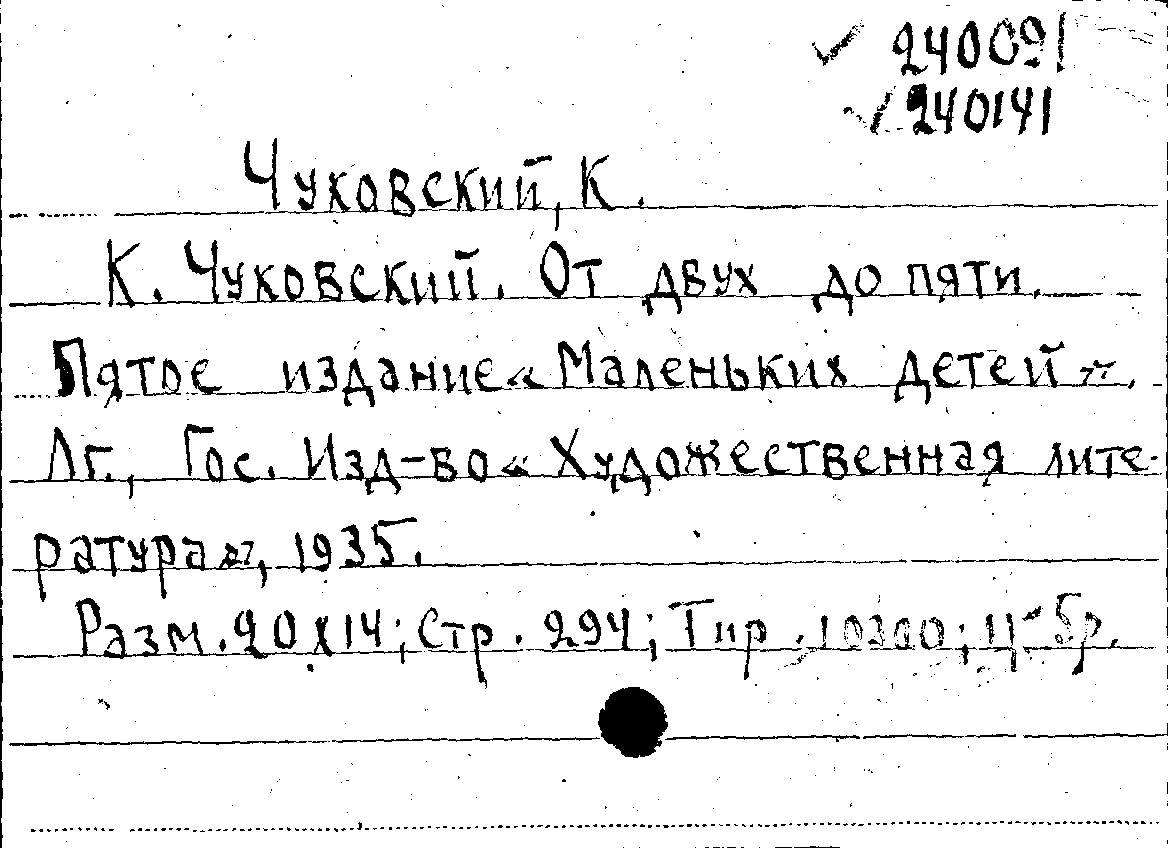 ✓ 240091
✓ 240141
Чуковский, К.
К. Чуковский. От двух до пяти.
Пятое издание « Маленьких детей ».
Лг., Гос. Изд-во « Художественная лите-
ратура», 1935.
Разм. 20х14; Стр. 294; Тир. 10300; Ц-5р.